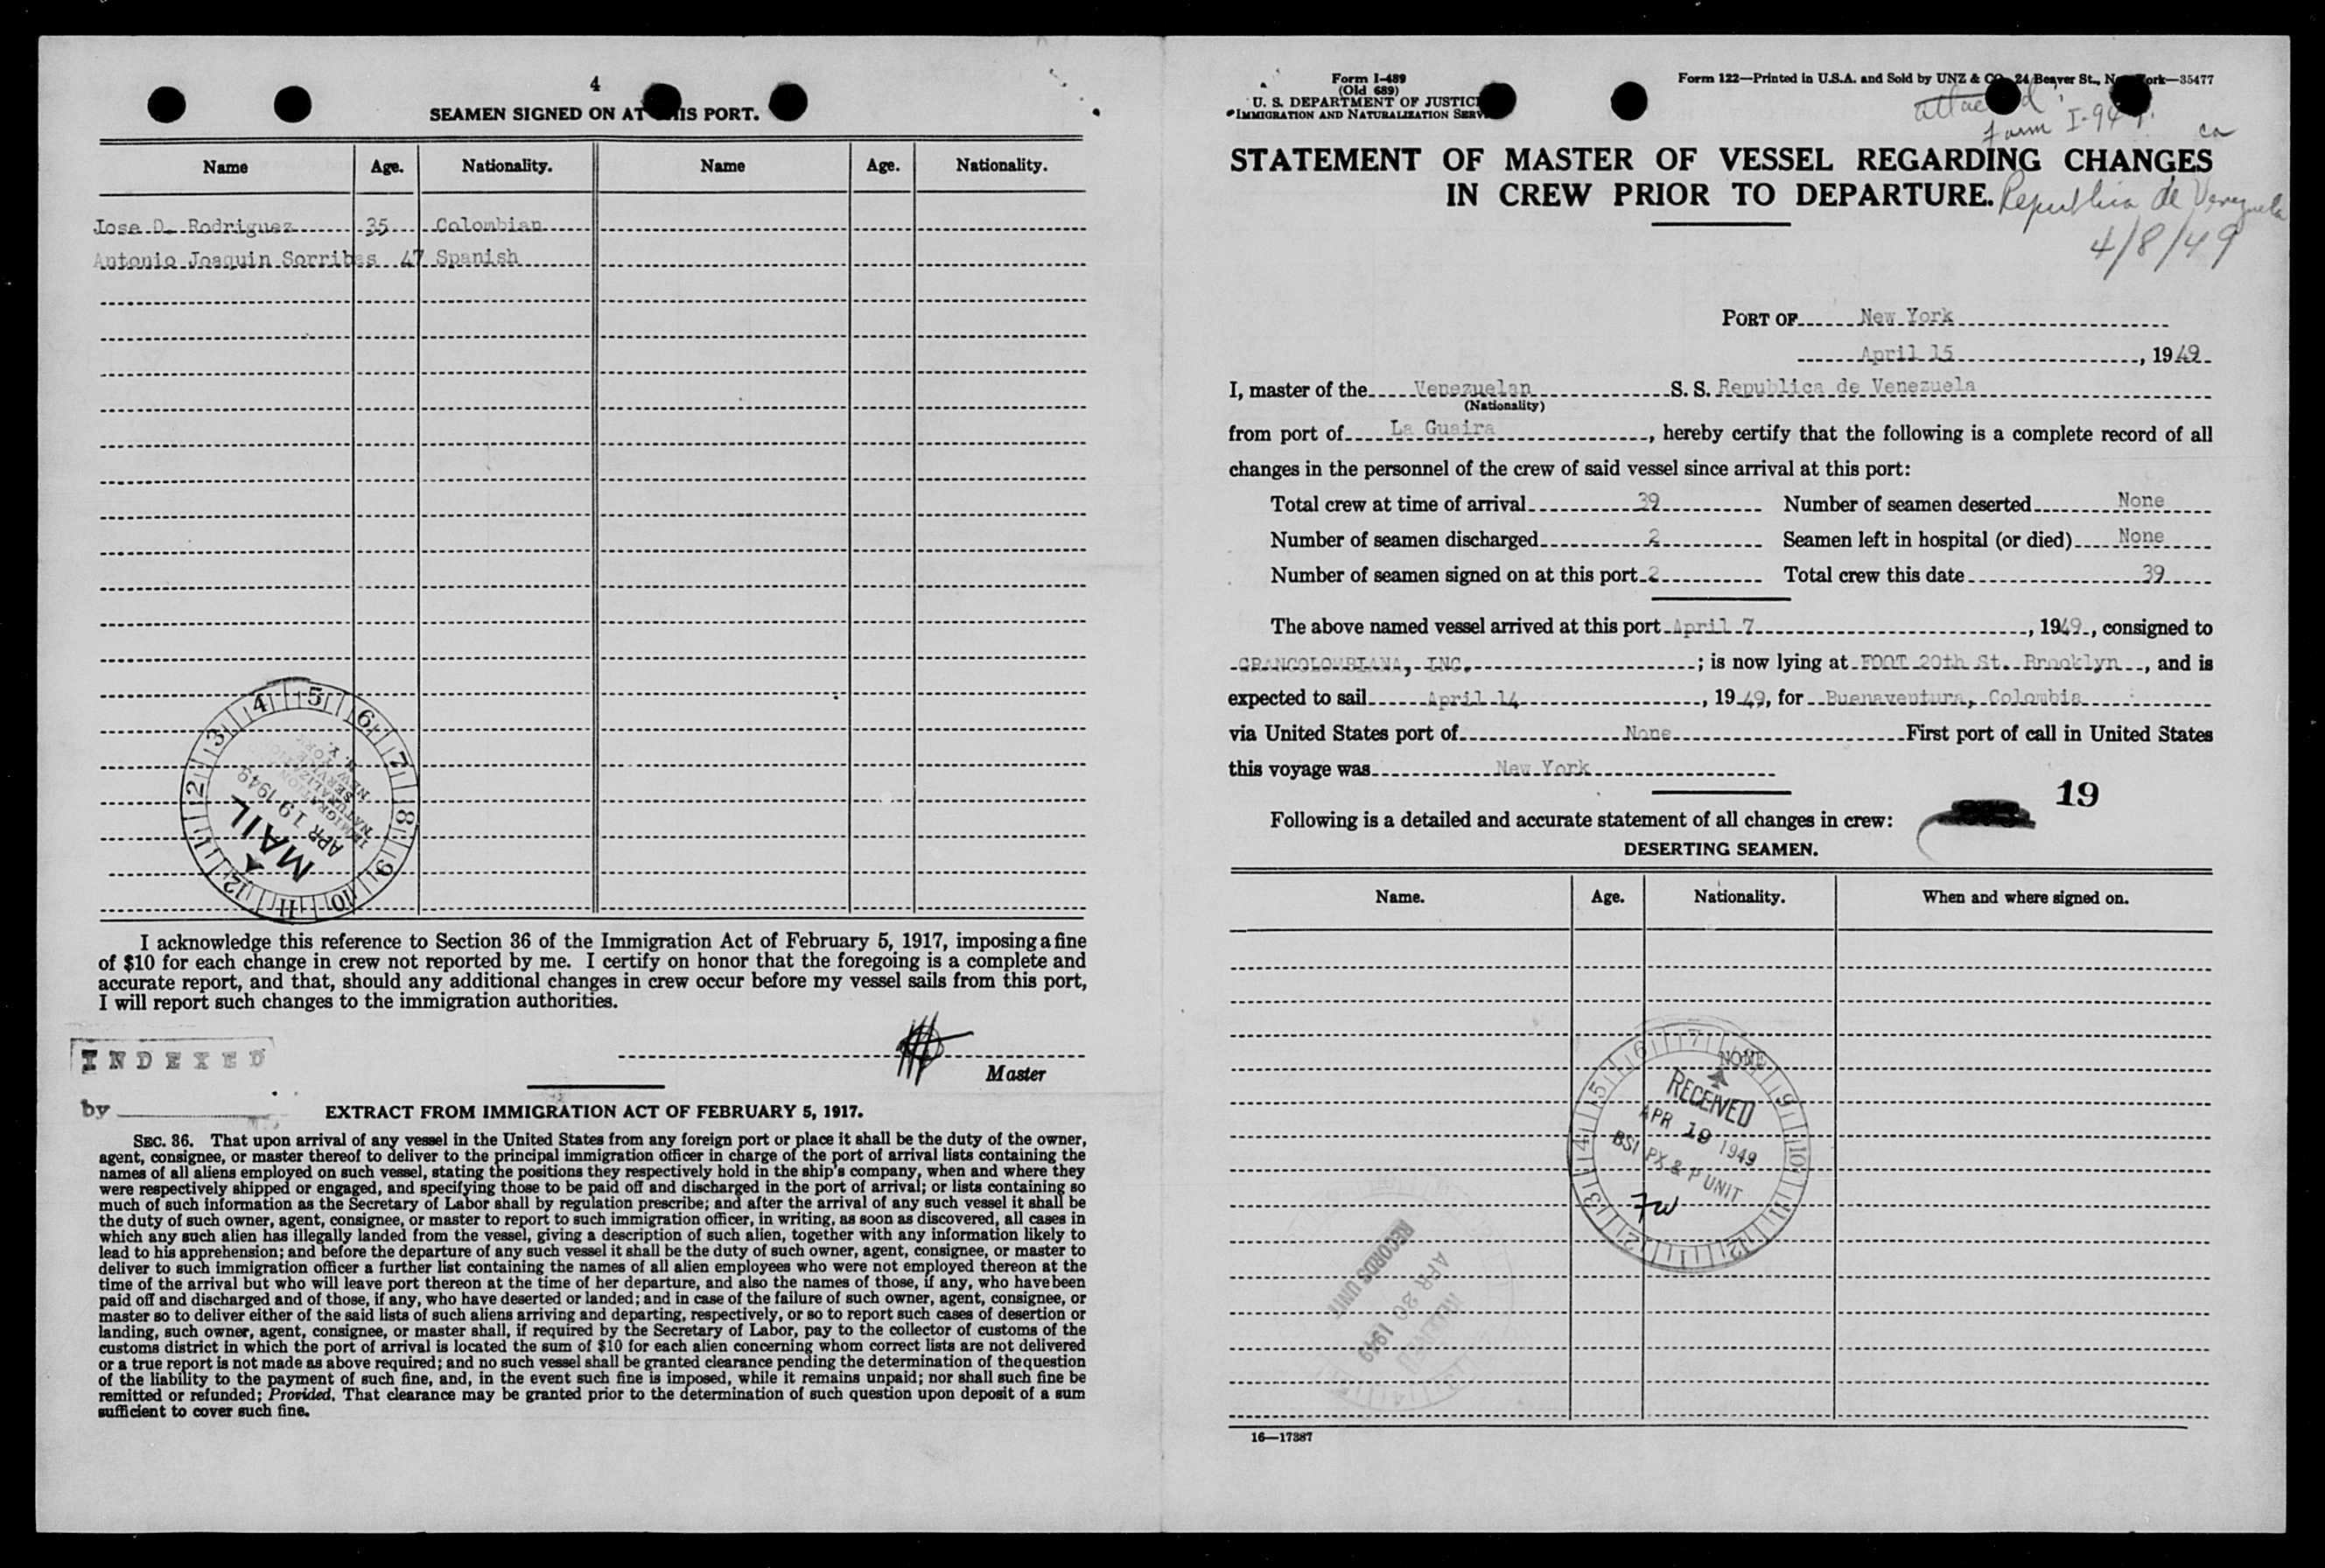 4
SEAMEN SIGNED ON AT THIS PORT.
Name Age. Nationality. Name Age. Nationality.
Jose D. Rodriguez 35 Colombian
Antonio Joaquin Sorribas 47 Spanish
4 5 6 7 8 9 10 11 12 1 2 3
IMMIGRATION
NATURALIZATION
SERVICE
NEW YORK
N. Y.
APR 19 1949
MAIL
I acknowledge this reference to Section 36 of the Immigration Act of February 5, 1917, imposing a fine
of $10 for each change in crew not reported by me. I certify on honor that the foregoing is a complete and
accurate report, and that, should any additional changes in crew occur before my vessel sails from this port,
I will report such changes to the immigration authorities.
INDEXED
Master
by
EXTRACT FROM IMMIGRATION ACT OF FEBRUARY 5, 1917.
SEC. 36. That upon arrival of any vessel in the United States from any foreign port or place it shall be the duty of the owner,
agent, consignee, or master thereof to deliver to the principal immigration officer in charge of the port of arrival lists containing the
names of all aliens employed on such vessel, stating the positions they respectively hold in the ship's company, when and where they
were respectively shipped or engaged, and specifying those to be paid off and discharged in the port of arrival; or lists containing so
much of such information as the Secretary of Labor shall by regulation prescribe; and after the arrival of any such vessel it shall be
the duty of such owner, agent, consignee, or master to report to such immigration officer, in writing, as soon as discovered, all cases in
which any such alien has illegally landed from the vessel, giving a description of such alien, together with any information likely to
lead to his apprehension; and before the departure of any such vessel it shall be the duty of such owner, agent, consignee, or master to
deliver to such immigration officer a further list containing the names of all alien employees who were not employed thereon at the
time of the arrival but who will leave port thereon at the time of her departure, and also the names of those, if any, who have been
paid off and discharged and of those, if any, who have deserted or landed; and in case of the failure of such owner, agent, consignee, or
master so to deliver either of the said lists of such aliens arriving and departing, respectively, or so to report such cases of desertion or
landing, such owner, agent, consignee, or master shall, if required by the Secretary of Labor, pay to the collector of customs of the
customs district in which the port of arrival is located the sum of $10 for each alien concerning whom correct lists are not delivered
or a true report is not made as above required; and no such vessel shall be granted clearance pending the determination of the question
of the liability to the payment of such fine, and, in the event such fine is imposed, while it remains unpaid; nor shall such fine be
remitted or refunded; Provided, That clearance may be granted prior to the determination of such question upon deposit of a sum
sufficient to cover such fine.
Form I-489
(Old 689)
U. S. DEPARTMENT OF JUSTICE
IMMIGRATION AND NATURALIZATION SERVICE
Form 122—Printed in U.S.A. and Sold by UNZ & CO., 24 Beaver St., New York—35477
attached
Form I-94
ca
STATEMENT OF MASTER OF VESSEL REGARDING CHANGES
IN CREW PRIOR TO DEPARTURE.
Republica de Venezuela
4/8/49
PORT OF New York
April 15, 1949
I, master of the Venezuelan S. S. Republica de Venezuela
(Nationality)
from port of La Guaira, hereby certify that the following is a complete record of all
changes in the personnel of the crew of said vessel since arrival at this port:
Total crew at time of arrival 39 Number of seamen deserted None
Number of seamen discharged 2 Seamen left in hospital (or died) None
Number of seamen signed on at this port 2 Total crew this date 39
The above named vessel arrived at this port April 7, 1949, consigned to
GRANCOLOMBIANA, INC.; is now lying at FOOT 20th St. Brooklyn, and is
expected to sail April 14, 1949, for Buenaventura, Colombia
via United States port of None First port of call in United States
this voyage was New York
19
Following is a detailed and accurate statement of all changes in crew:
DESERTING SEAMEN.
Name. Age. Nationality. When and where signed on.
NONE
RECEIVED
APR 19 1949
BSI PX & P UNIT
7w
RECORDS UNIT
APR 20 1949
RECEIVED
16—17387